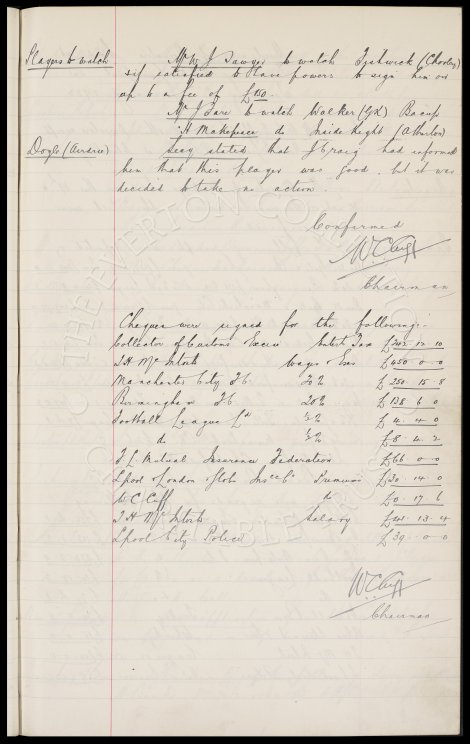 Players to watch
Mr W J Sawyer to watch Fishwick (Chorley)
& if satisfied to have powers to sign him on
up to a fee of £150.
Mr J Fare to watch Walker (GK) Bacup
" H Makepeace do Inside Right (Atherton)
Doyle (Airdrie)
Secy stated that J Craig had informed
him that this player was good, but it was
decided to take no action.
Confirmed
W.C. Cuff
Chairman
Cheques were signed for the following:-
Collector of Customs & Excise Entert Tax 12 10
T H McIntosh Wages & Exes £450 0 0
Manchester City F.C. 20% £250 15 8
Birmingham F.C. 20% £138 6 0
Football League Ld £4 4 0
do £8 4 2
F L Mutual Insurance Federation £66 0 0
Lpool & London & Globe Insce Co Premiums £30 14 0
W C Cuff £0 17 6
T H McIntosh Salary 13 4
Lpool City Police £39 0 0
W.C. Cuff
Chairman
THE EVERTON COLLECTION
CHARITABLE TRUST